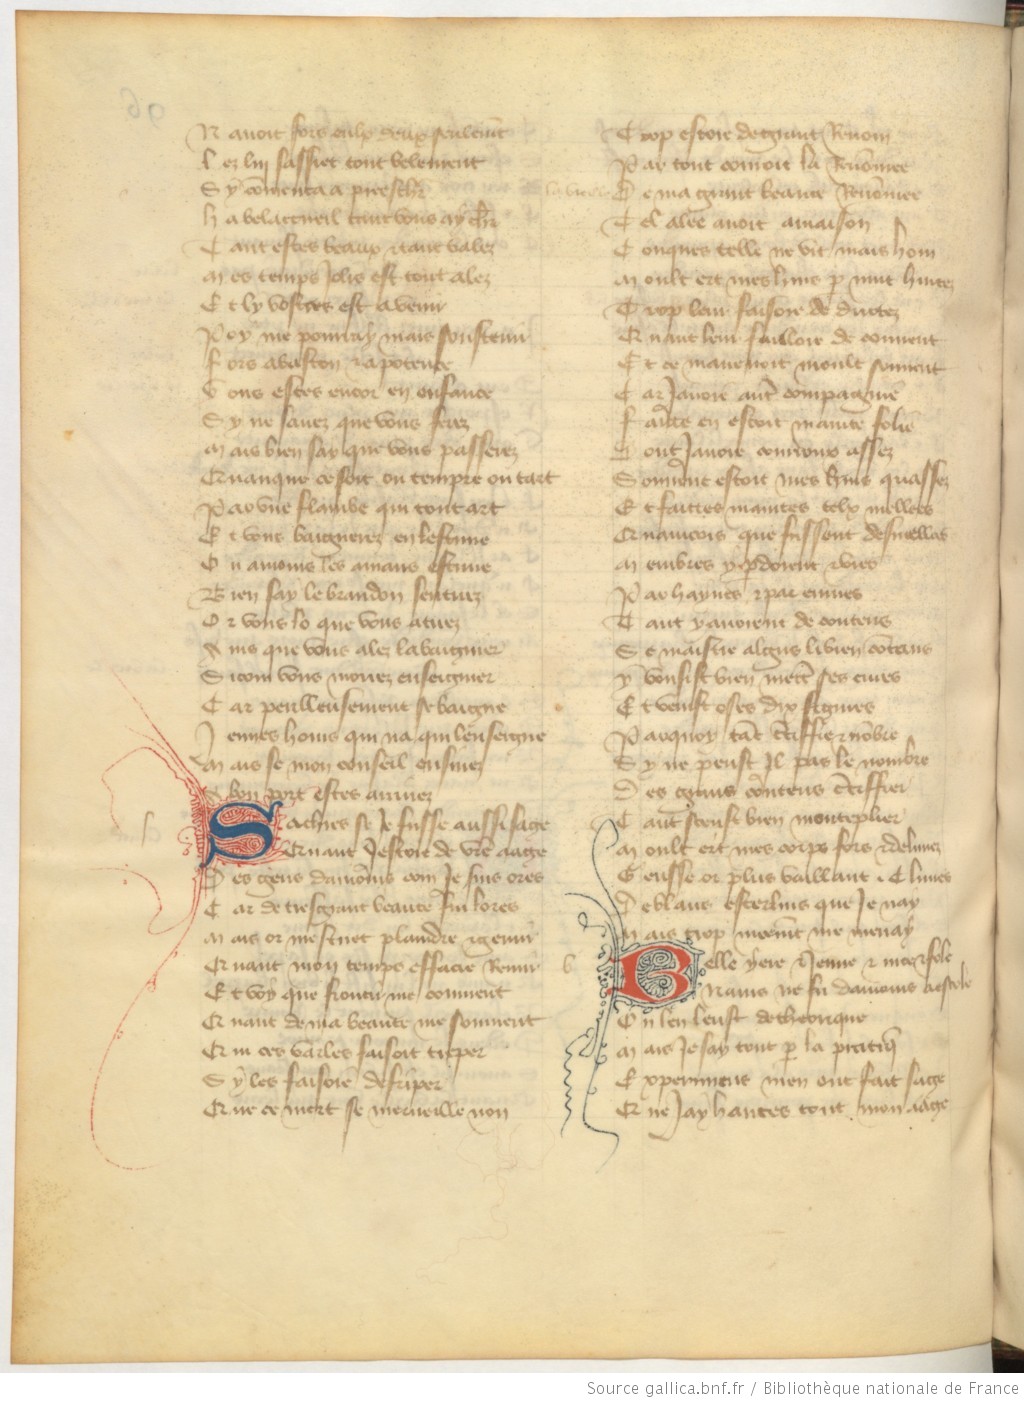 N avoit fors eulx deux seulemt
L ez luy sassiet tout belement
S y comenca a preeschr
H a belacueil tant vous ay chr
T ant estes beaux et tant valez
M es temps jolis est tout alez
E t ly vostres est a venir
P oy me pourray mais soustenir
F ors a baston et a potence
V ous estes encor en enfance
S y ne savez que vous ferez
M ais bien say que vous passerez
Quanque ce soit ou tempre ou tart
P ar une flambe qui tout art
E t vous baignerez en lestuve
O u amours les amans estuve
B ien say le brandon sentirez
O r vous lo que vous atirez
A ins que vous alez la baignier
S i com vous morrez enseignier
C ar perilleusement se baigne
J ennes homs qui na qui lenseigne
M ais se mon conseil ensivez
A bon port estes arivez
S achies se je fusse aussi sage
Quant jestoie de vre aage
D es gieus damours com je suis ores
C ar de tresgrant beaute fui lores
M ais or mestuet plaindre et gemir
Quant mon temps efface remir
E t voy que froncir me convient
Quant de ma beaute me souvient
Qui ces varles faisoit triper
S y les faisoie defriper
Que ce niert se merveille non
T rop estoie de grant renom
P ar tout couroit la renomee
D e ma grant beaute renomee
T el alee avoit a maison
C onques telle ne vit mais hom
M oult ert mes huis p nuit hurtez
T rop leur faisoie de durtez
Quant leur failloie de couvent
E t ce mavenoit moult souvent
C ar javoie autr compagnie
F aite en estoit mainte folie
D ont javoie courroux assez
S ouvent estoit mes huis quassez
E t faittes maintes telx mellees
Quaincois que fussent desmellees
M embres y pdoient et vies
P ar haynes et par envies
T ant y avoient de contens
S e maistre algus li bien contans
Y vousist bien mettr ses cures
E t venist o ses dix figures
P arquoy tout certiffie et nombre
S y ne peust il pas le nombre
D es grans contens certiffier
T ant sceust bien monteplier
M oult ert mes corps fors et delivrez
G eusse or plus vaillant .C. livres
D e blans esterlins que je nay
M ais trop nicemt me menay
B elle yere et jenne et nice et fole
N ains ne fu damours a escole
O u len leust de theorique
M ais je say tout p la pratiq
E xperiment men ont fait sage
Que jay hantes tout mon aage
Source gallica.bnf.fr / Bibliothèque nationale de France